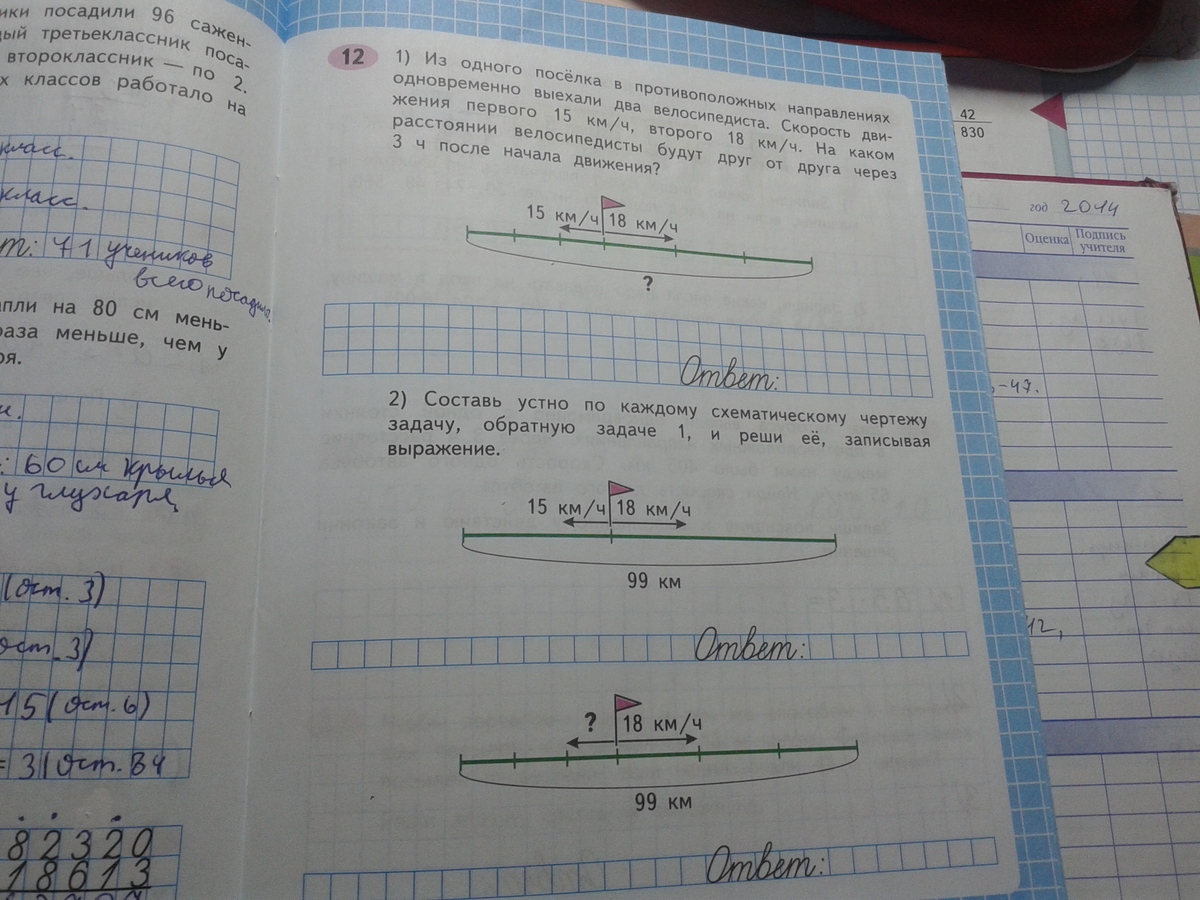 ики посадили 96 сажен-
дый третьеклассник поса-
второклассник — по 2.
х классов работало на
класс.
класс.
т: 71 учеников
всего посадил.
апли на 80 см мень-
раза меньше, чем у
ря.
: 60 см крылья
у глухаря
(ост. 3)
ост. 3)
15 (ост. 6)
= 31 (ост. 34
82320
18613
12
1) Из одного посёлка в противоположных направлениях
одновременно выехали два велосипедиста. Скорость дви-
жения первого 15 км/ч, второго 18 км/ч. На каком
расстоянии велосипедисты будут друг от друга через
3 ч после начала движения?
15 км/ч 18 км/ч
?
Ответ:
2) Составь устно по каждому схематическому чертежу
задачу, обратную задаче 1, и реши её, записывая
выражение.
15 км/ч 18 км/ч
99 км
Ответ:
? 18 км/ч
99 км
Ответ:
42
830
год 2014
Оценка Подпись
учителя
-47.
12,